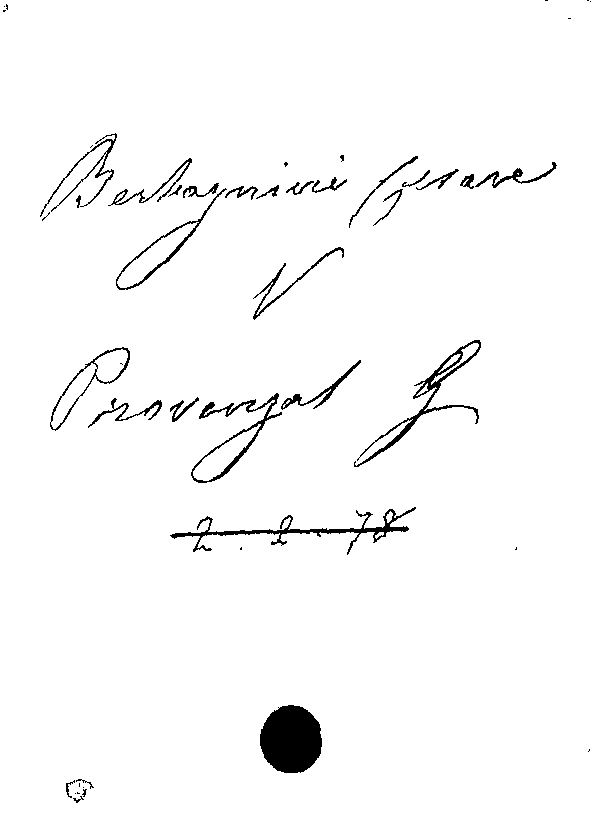 Bertagnini Cesare
V
Provenzal G
2. 2. 78